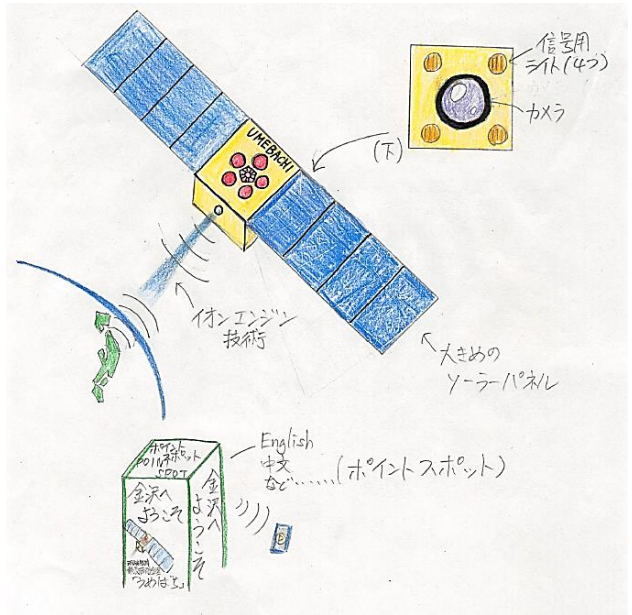 信号用
ライト(4つ)
カメラ
(下)
UMEBACHI
イオンエンジン
技術
大きめの
ソーラーパネル
English
中文
など……(ポイントスポット)
ポイントスポット
POINT
SPOT
金沢へ
ようこそ
金沢へようこそ
「うめばち」